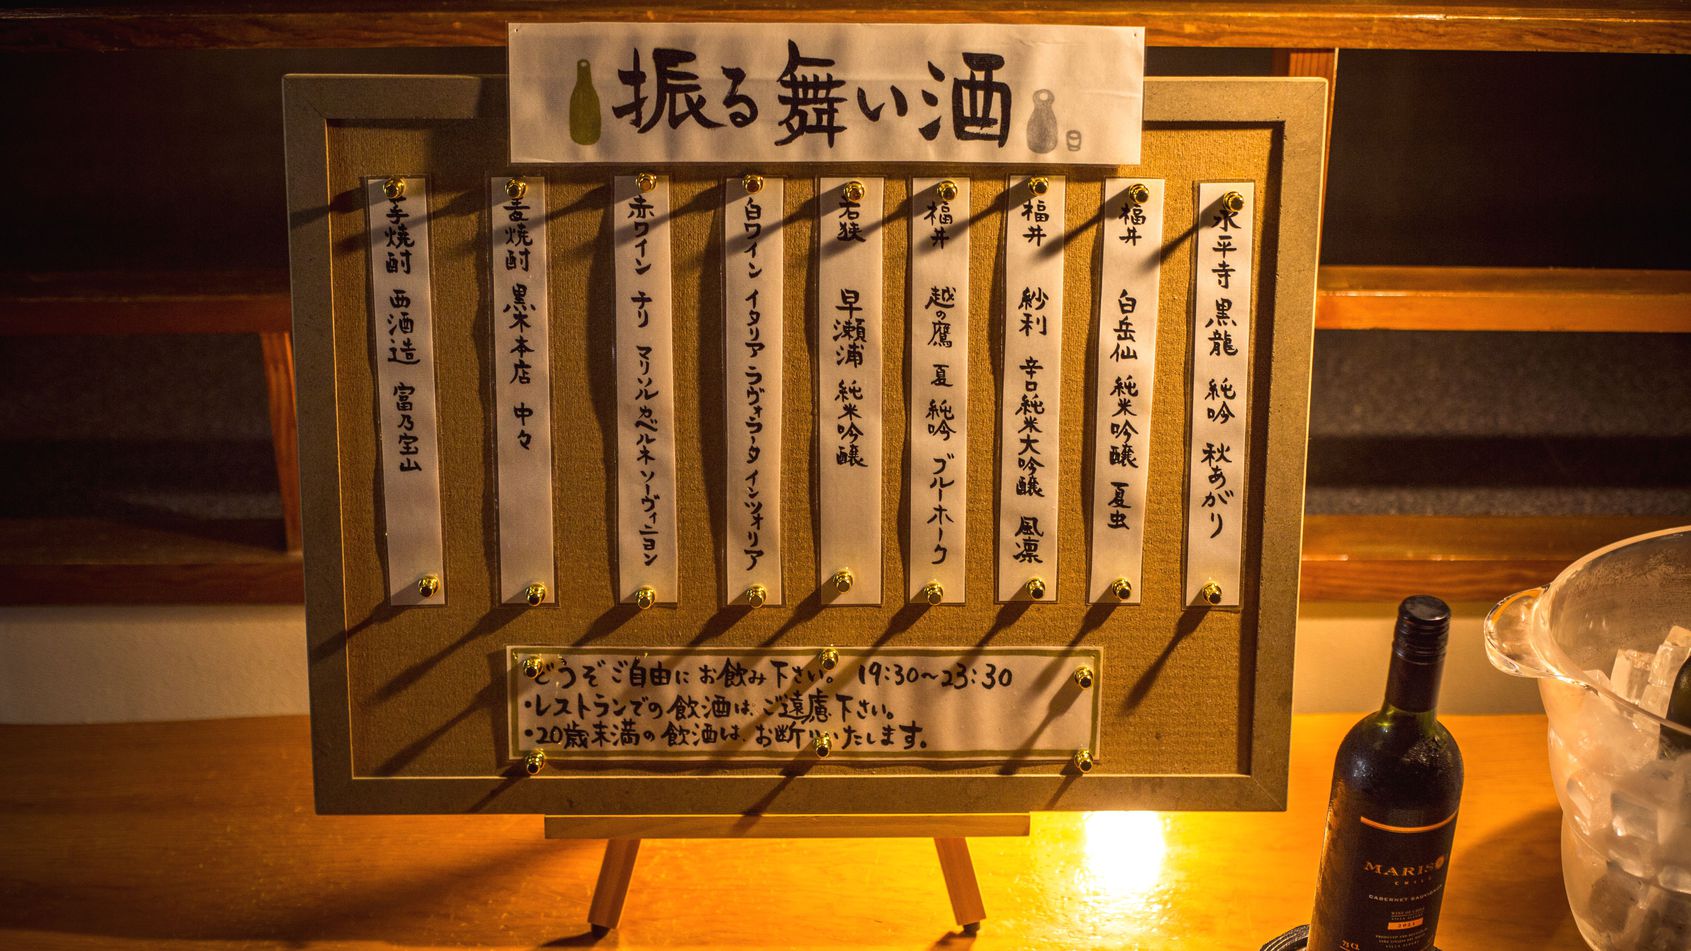 振る舞い酒
永平寺 黒龍 純吟 秋あがり
福井 白岳仙 純米吟醸 夏虫
福井 紗利 辛口純米大吟醸 風凛
福井 越の鷹 夏 純吟 ブルーホーク
若狭 早瀬浦 純米吟醸
白ワイン イタリア ラヴォラータ インツォリア
赤ワイン チリ マリソル カベルネソーヴィニヨン
麦焼酎 黒木本店 中々
芋焼酎 西酒造 富乃宝山
どうぞご自由にお飲み下さい。 19:30〜23:30
・レストランでの飲酒は、ご遠慮下さい。
・20歳未満の飲酒は、お断りいたします。
MARISO
CHILE
CABERNET SAUVIGNON